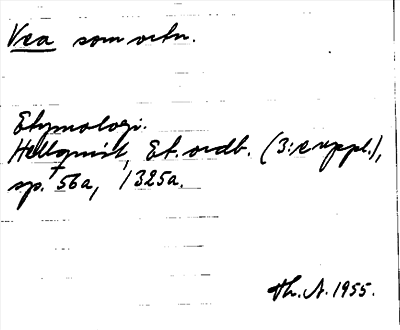 Vea som ortn.
Etymologi.
Hellquist, Et. ordb. (3:e uppl.),
sp. 56a, 1325a.
Th. A. 1955.